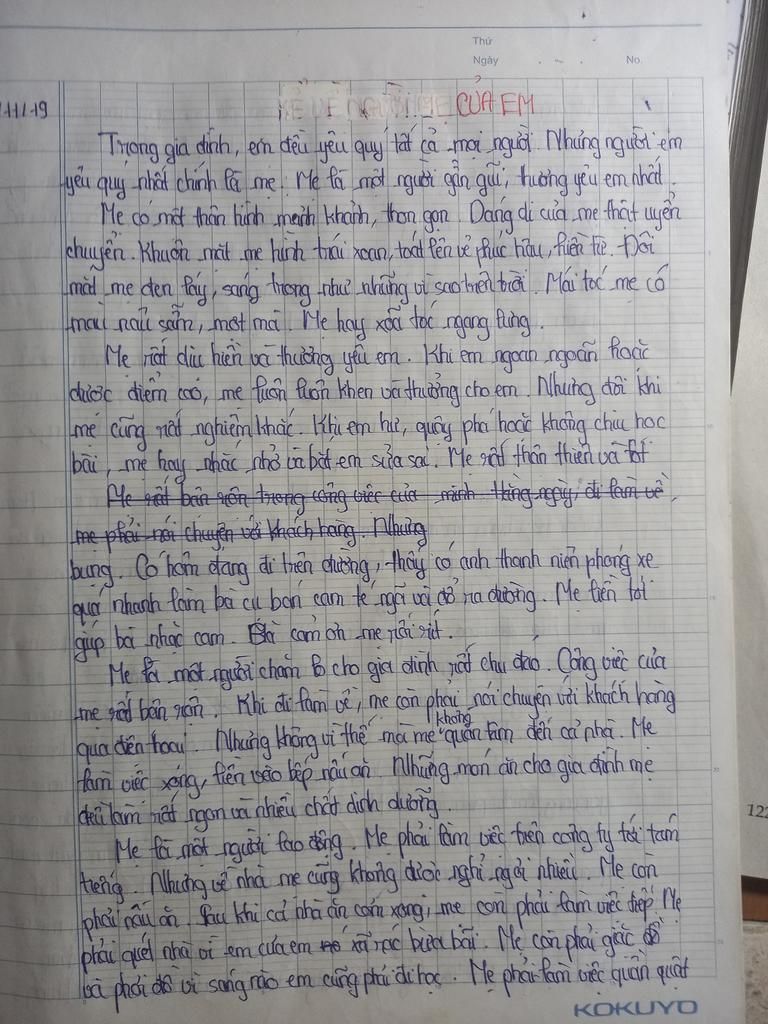 Thứ
Ngày No.
11/19
KỂ VỀ NGƯỜI MẸ CỦA EM
Trong gia đình, em đều yêu quý tất cả mọi người. Nhưng người em
yêu quý nhất chính là mẹ. Mẹ là một người gần gũi, thương yêu em nhất.
Mẹ có một thân hình mảnh khảnh, thon gọn. Dáng đi của mẹ thật uyển
chuyển. Khuôn mặt mẹ hình trái xoan, toát lên vẻ phúc hậu, hiền từ. Đôi
mắt mẹ đen láy, sáng trong như những vì sao trên trời. Mái tóc mẹ có
màu nâu sẫm, mượt mà. Mẹ hay xoã tóc ngang lưng.
Mẹ rất dịu hiền và thương yêu em. Khi em ngoan ngoãn hoặc
được điểm cao, mẹ luôn luôn khen và thưởng cho em. Nhưng đôi khi
mẹ cũng rất nghiêm khắc. Khi em hư, quậy phá hoặc không chịu học
bài, mẹ hay nhắc nhở và bắt em sửa sai. Mẹ rất thân thiện và tốt
Mẹ rất bận rộn trong công việc của mình hàng ngày, đi làm về,
mẹ phải nói chuyện với khách hàng. Nhưng
bụng. Có hôm đang đi trên đường, thấy có anh thanh niên phóng xe
quá nhanh làm bà cụ bán cam té ngã và đổ ra đường. Mẹ tiến tới
giúp bà nhặc cam. Bà cảm ơn mẹ ríu rít.
Mẹ là một người chăm lo cho gia đình rất chu đáo. Công việc của
mẹ rất bận rộn. Khi đi làm về, mẹ còn phải nói chuyện với khách hàng
qua điện thoại. Nhưng không vì thế mà mẹ không quan tâm đến cả nhà. Mẹ
làm việc xong, liền vào bếp nấu ăn. Những món ăn cho gia đình mẹ
đều làm rất ngon và nhiều chất dinh dưỡng.
Mẹ là một người lao động. Mẹ phải làm việc trên công ty tới tám
tiếng. Nhưng về nhà mẹ cũng không được nghỉ ngơi nhiều. Mẹ còn
phải nấu ăn. Sau khi cả nhà ăn cơm xong, mẹ còn phải làm việc tiếp. Mẹ
phải quét nhà vì em của em xả rác bừa bãi. Mẹ còn phải giặc đồ
và phơi đồ vì sáng nào em cũng phải đi học. Mẹ phải làm việc quần quật
KOKUYO
122